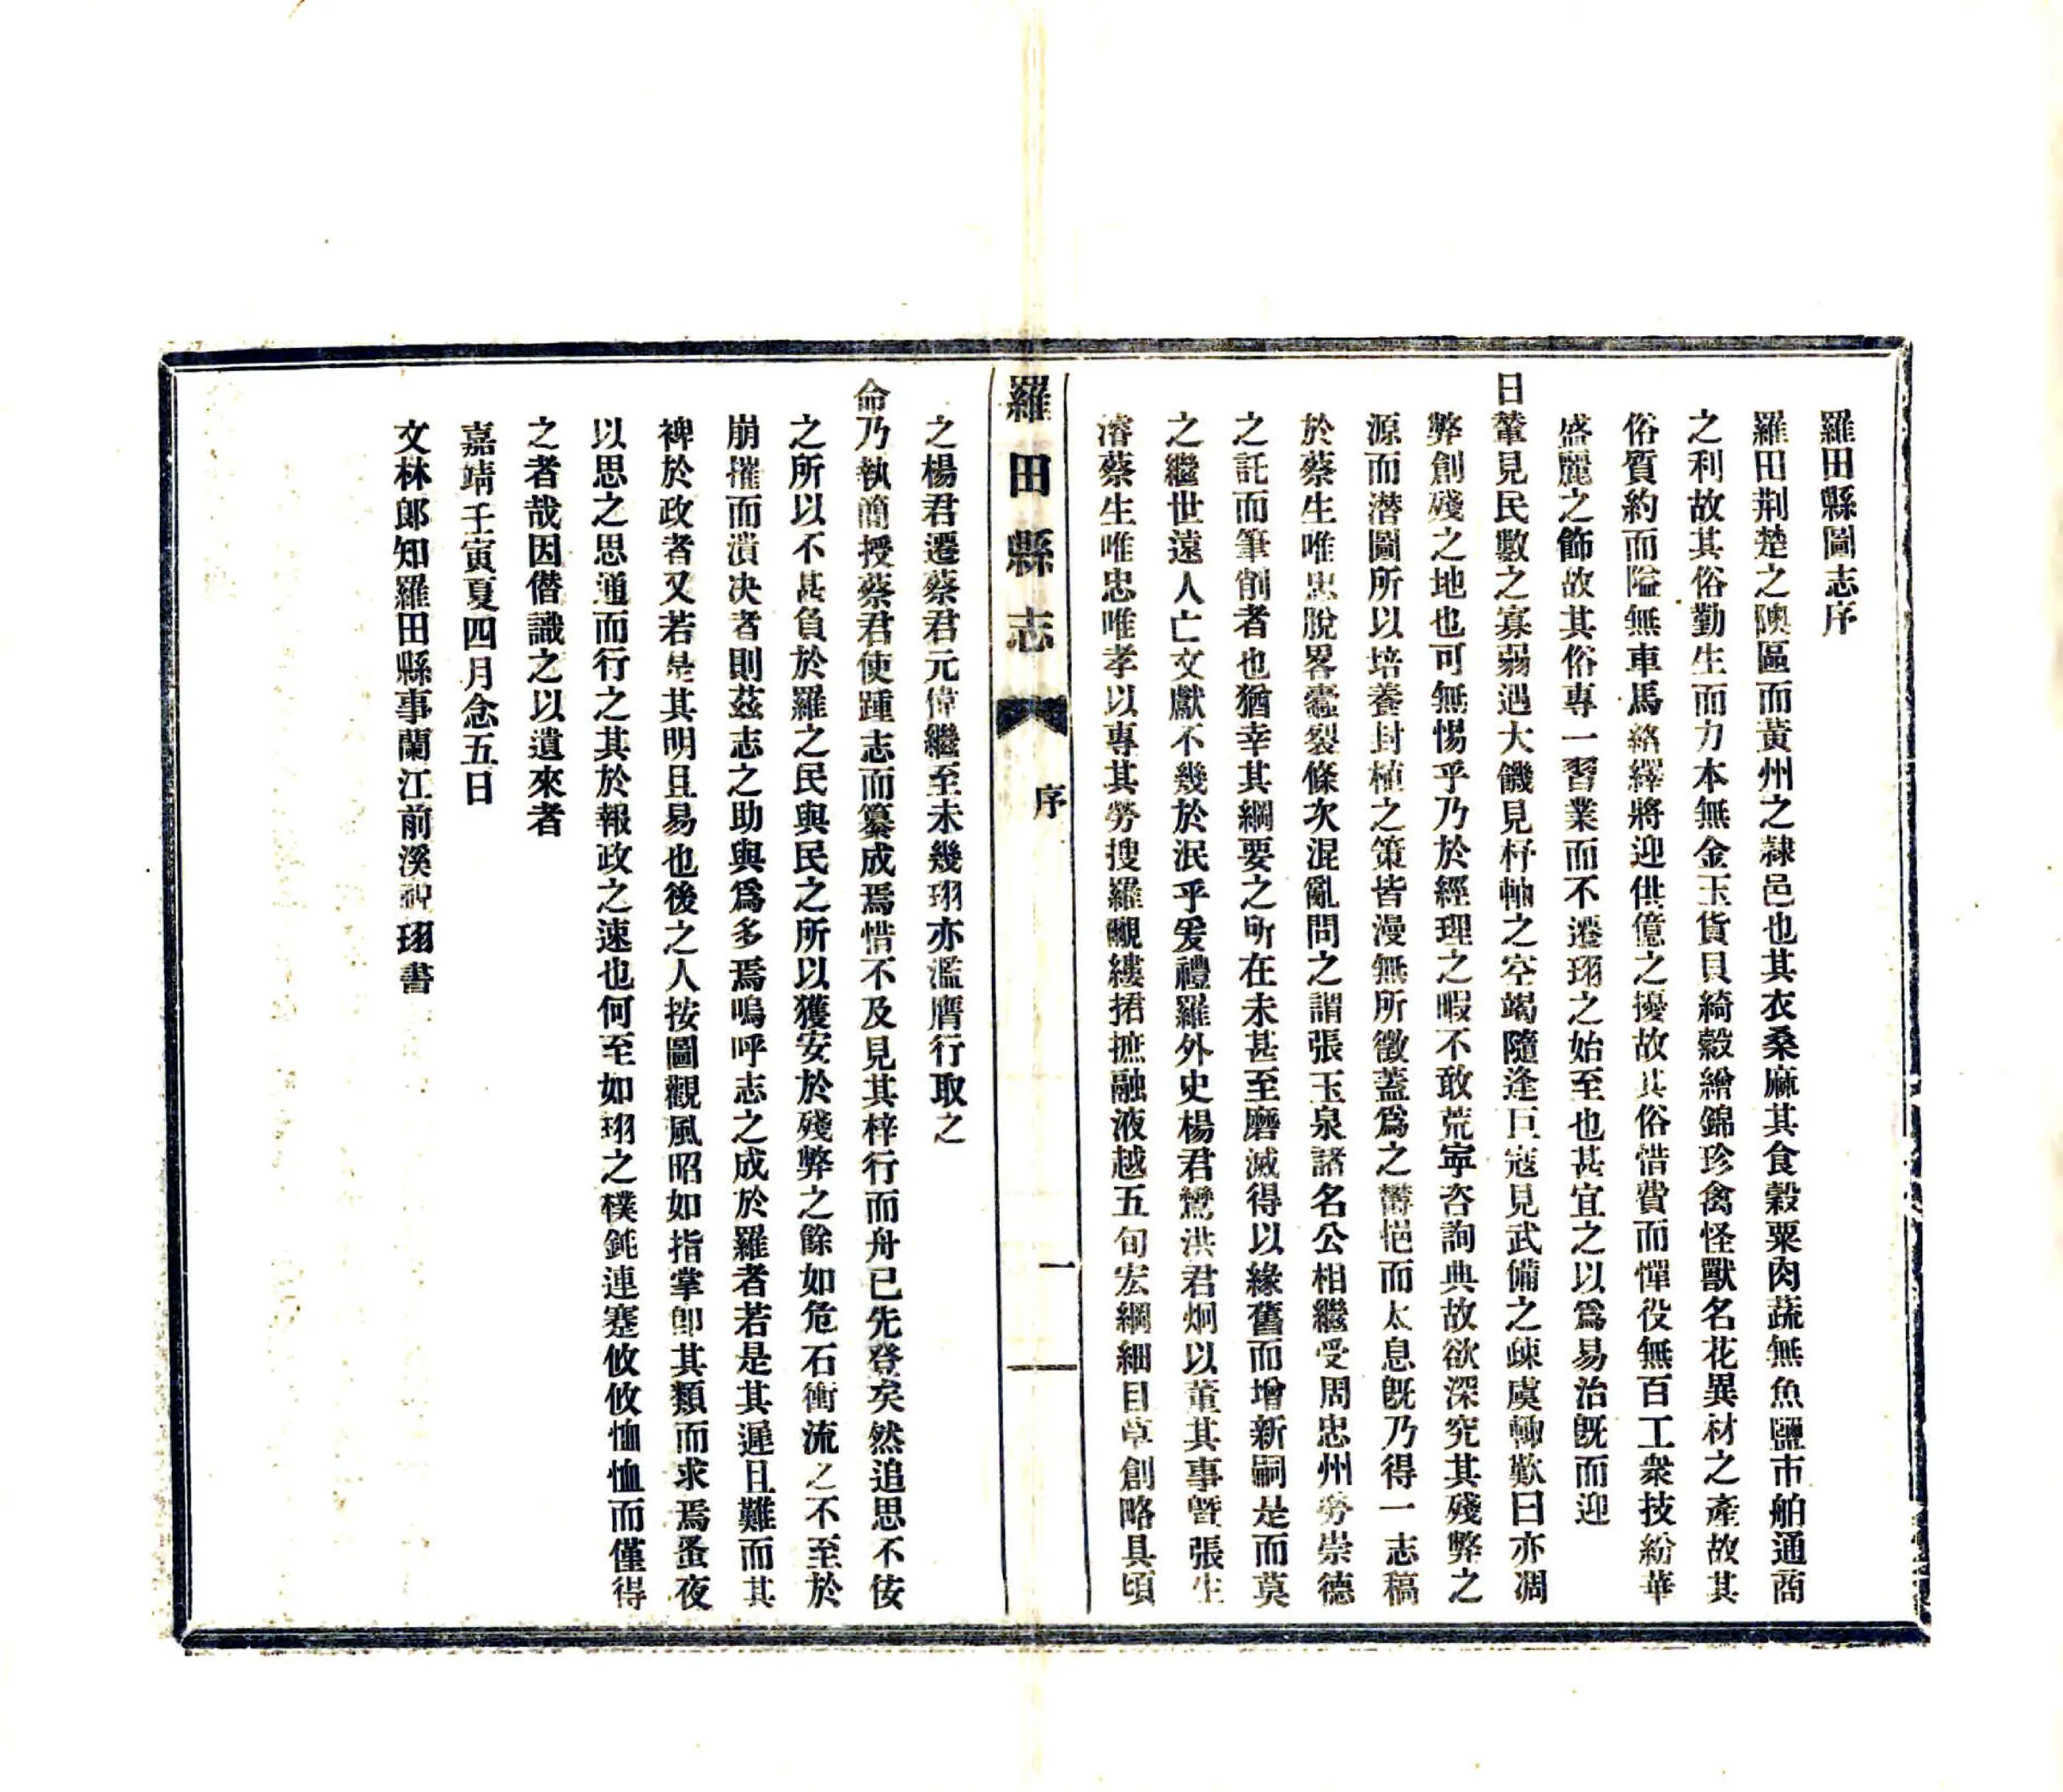 羅田縣圖志序
羅田荆楚之隩區而黃州之隸邑也其衣桑麻其食穀粟肉蔬無魚鹽市舶通商
之利故其俗勤生而力本無金玉貨貝綺縠繒錦珍禽怪獸名花異材之產故其
俗質約而隘無車馬絡繹將迎供億之擾故其俗惜費而憚役無百工衆技紛華
盛麗之飾故其俗專一習業而不遷珝之始至也甚宜之以爲易治既而迎
日輦見民數之寡弱遇大饑見杼軸之空竭隨逢巨寇見武備之疎虞輙歎曰亦凋
弊創殘之地也可無惕乎乃於經理之暇不敢荒寧咨詢典故欲深究其殘弊之
源而潛圖所以培養封植之策皆漫無所徵蓋爲之欝悒而太息既乃得一志稿
於蔡生唯忠脫畧蠹裂條次混亂問之謂張玉泉諸名公相繼受周忠州勞崇德
之託而筆削者也猶幸其綱要之所在未甚至磨滅得以緣舊而增新嗣是而莫
之繼世遠人亡文獻不幾於泯乎爰禮羅外史楊君鸞洪君炯以董其事暨張生
濬蔡生唯忠唯孝以專其勞搜羅覼縷捃摭融液越五旬宏綱細目草創略具頃
羅田縣志
序
一
之楊君遷蔡君元偉繼至未幾珝亦濫膺行取之
命乃執簡授蔡君使踵志而纂成焉惜不及見其梓行而舟已先登矣然追思不佞
之所以不甚負於羅之民與民之所以獲安於殘弊之餘如危石衝流之不至於
崩摧而潰決者則茲志之助與爲多焉嗚呼志之成於羅者若是其遲且難而其
裨於政者又若是其明且易也後之人按圖觀風昭如指掌卽其類而求焉蚤夜
以思之思通而行之其於報政之速也何至如珝之樸鈍連蹇攸攸恤恤而僅得
之者哉因僭識之以遺來者
嘉靖壬寅夏四月念五日
文林郎知羅田縣事蘭江前溪祝珝書